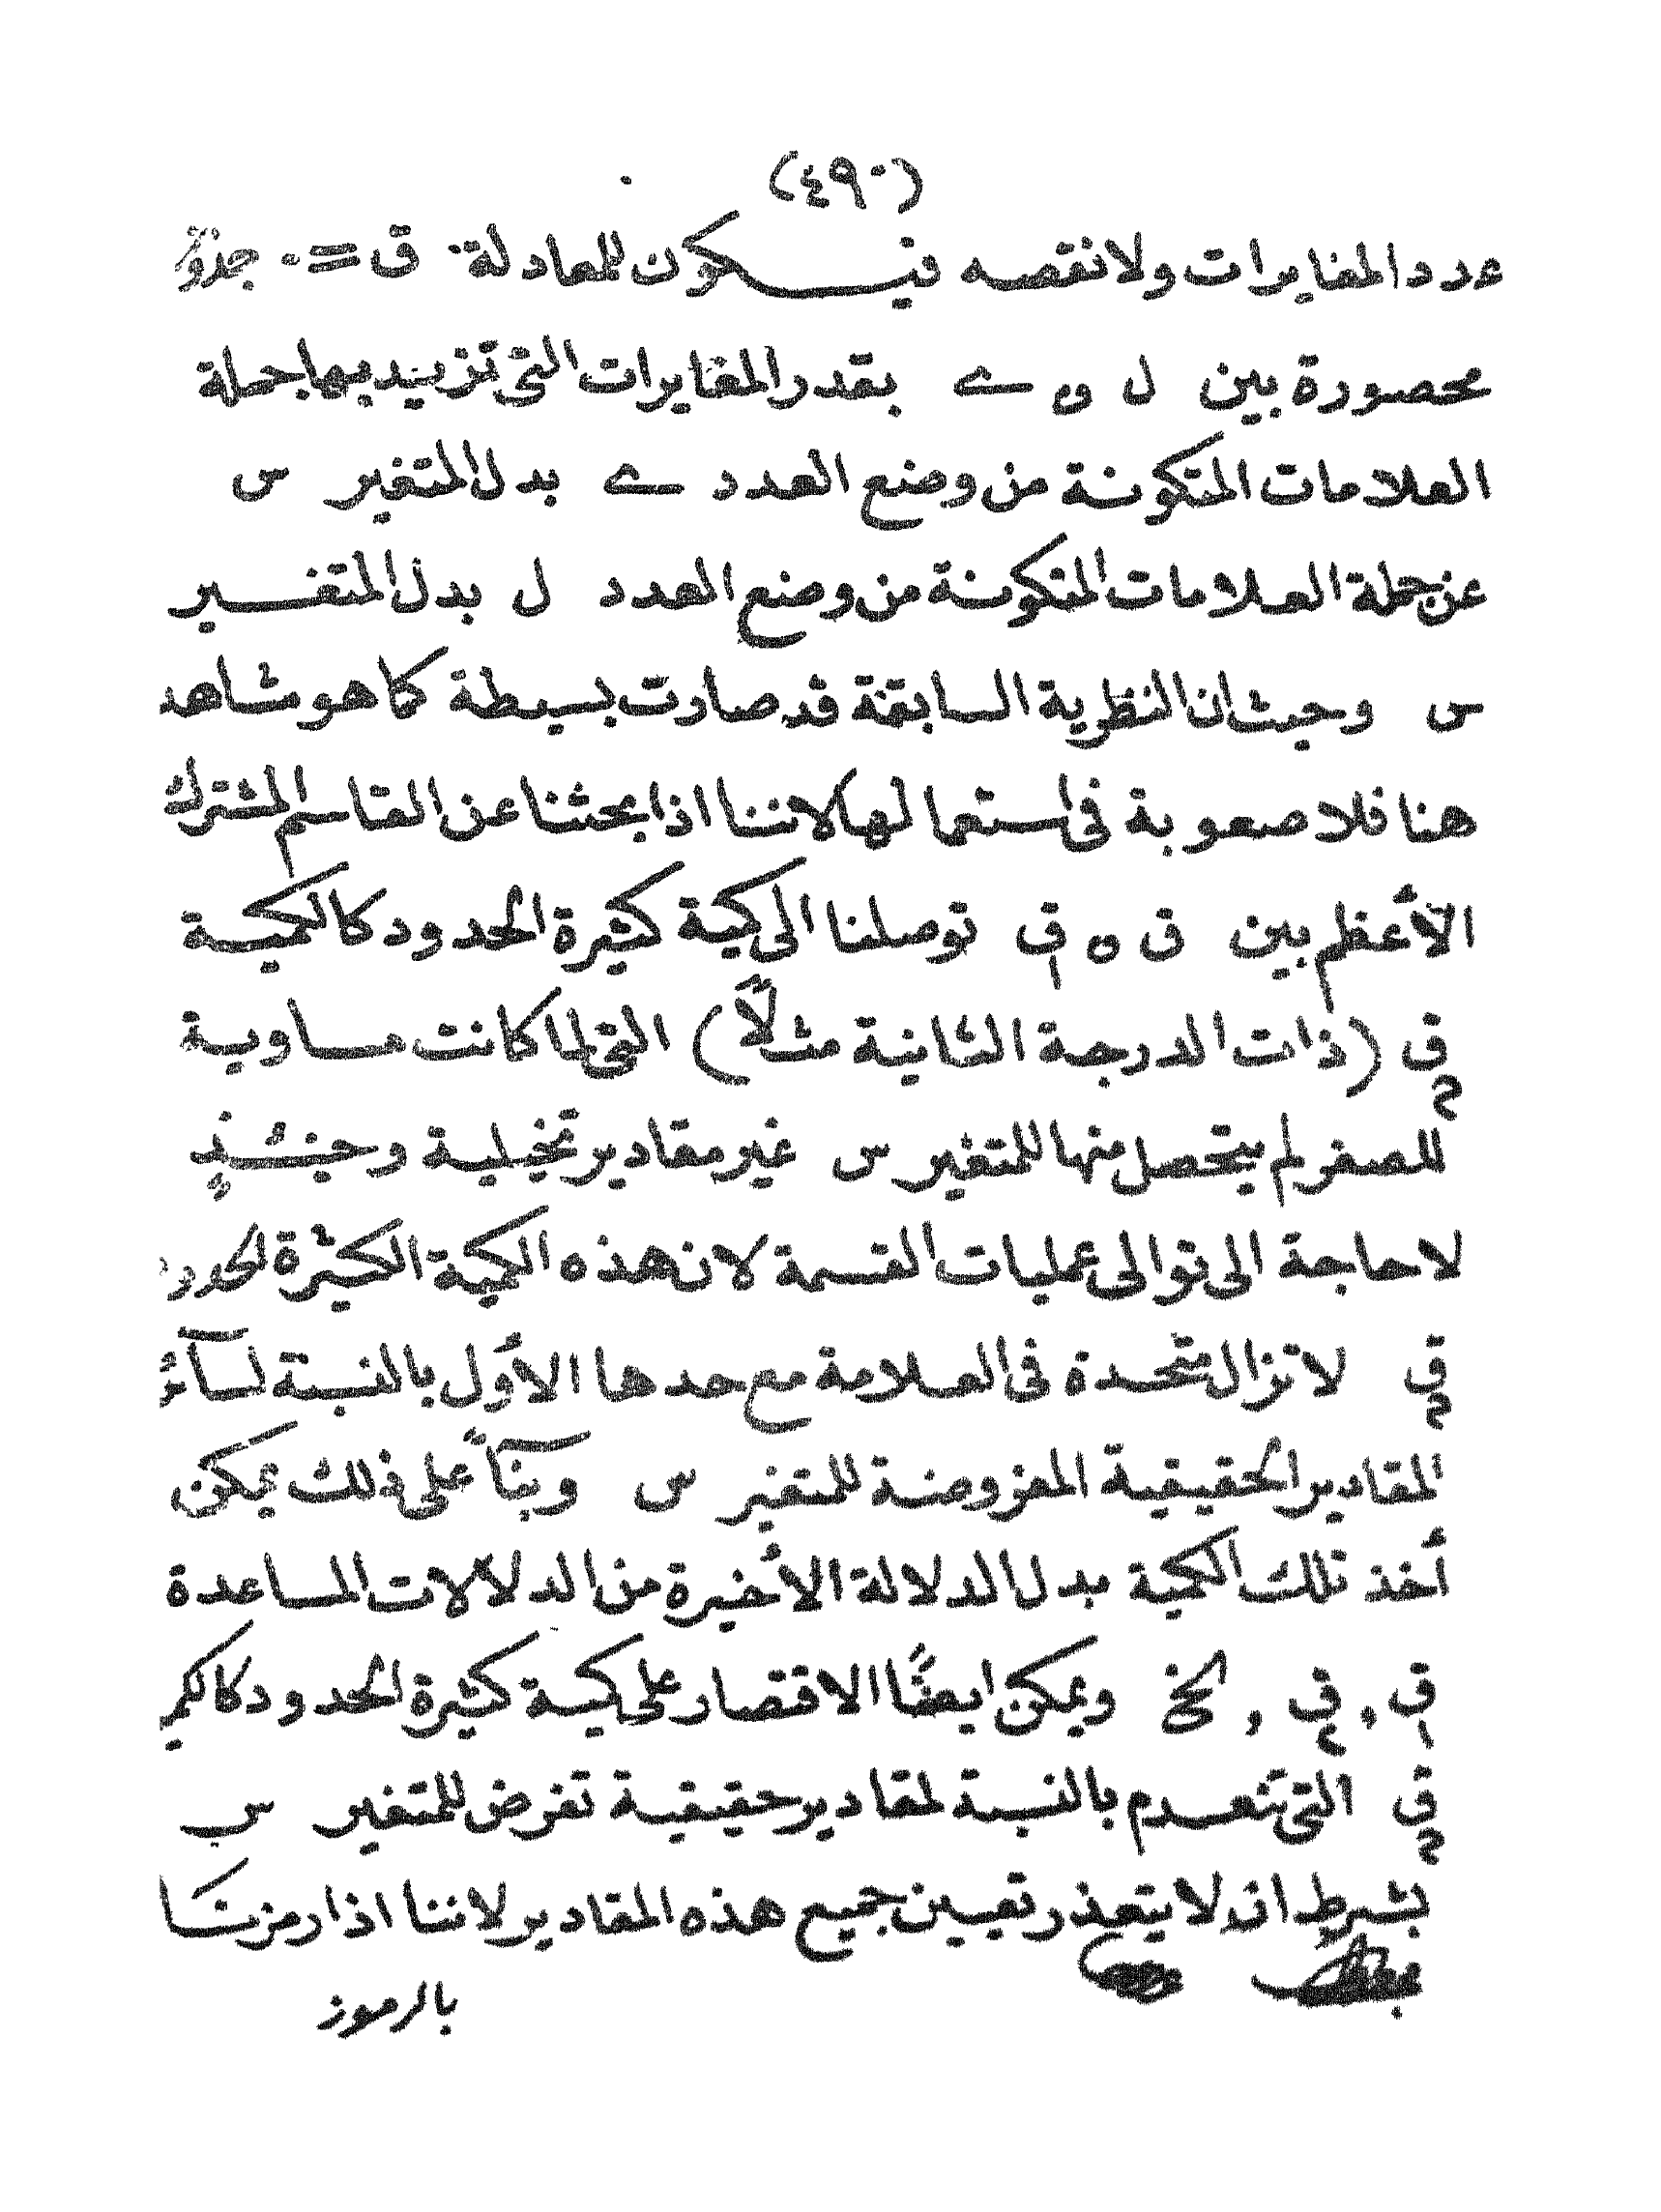 (٤٩٠)
عدد المغايرات ولا نقصه فيكون للمعادلة ق = ٠ جذور
محصورة بين ل و ے بقدر المغايرات التى تزيد بها جملة
العلامات المتكونة من وضع العدد ے بدل المتغير س
عن جملة العلامات المتكونة من وضع العدد ل بدل المتغير
س وحيث ان النظرية السابقة قد صارت بسيطة كما هو مشاهد
هنا فلا صعوبة فى استعمالها لاننا اذا بحثنا عن القاسم المشترك
الأعظم بين ق و ق١ توصلنا الى كمية كثيرة الحدود كالكمية
ق٢ (ذات الدرجة الثانية مثلاً) التى لما كانت مساوية
للصفر لم يتحصل منها للمتغير س غير مقادير تخيلية وحينئذٍ
لا حاجة الى توالى عمليات القسمة لان هذه الكمية الكثيرة الحدود
ق٢ لا تزال متحدة فى العلامة مع حدها الأول بالنسبة لسائر
المقادير الحقيقية المفروضة للمتغير س وبناً على ذلك يمكن
أخذ تلك الكمية بدل الدلالة الأخيرة من الدلالات المساعدة
ق١ , ق٢ , الخ ويمكن ايضًا الاقتصار على كمية كثيرة الحدود كالكمية
ق٢ التى تنعدم بالنسبة لمقادير حقيقية تفرض للمتغير س
بشرط ان لا يتعذر تعيين جميع هذه المقادير لاننا اذا رمزنا
بالرموز